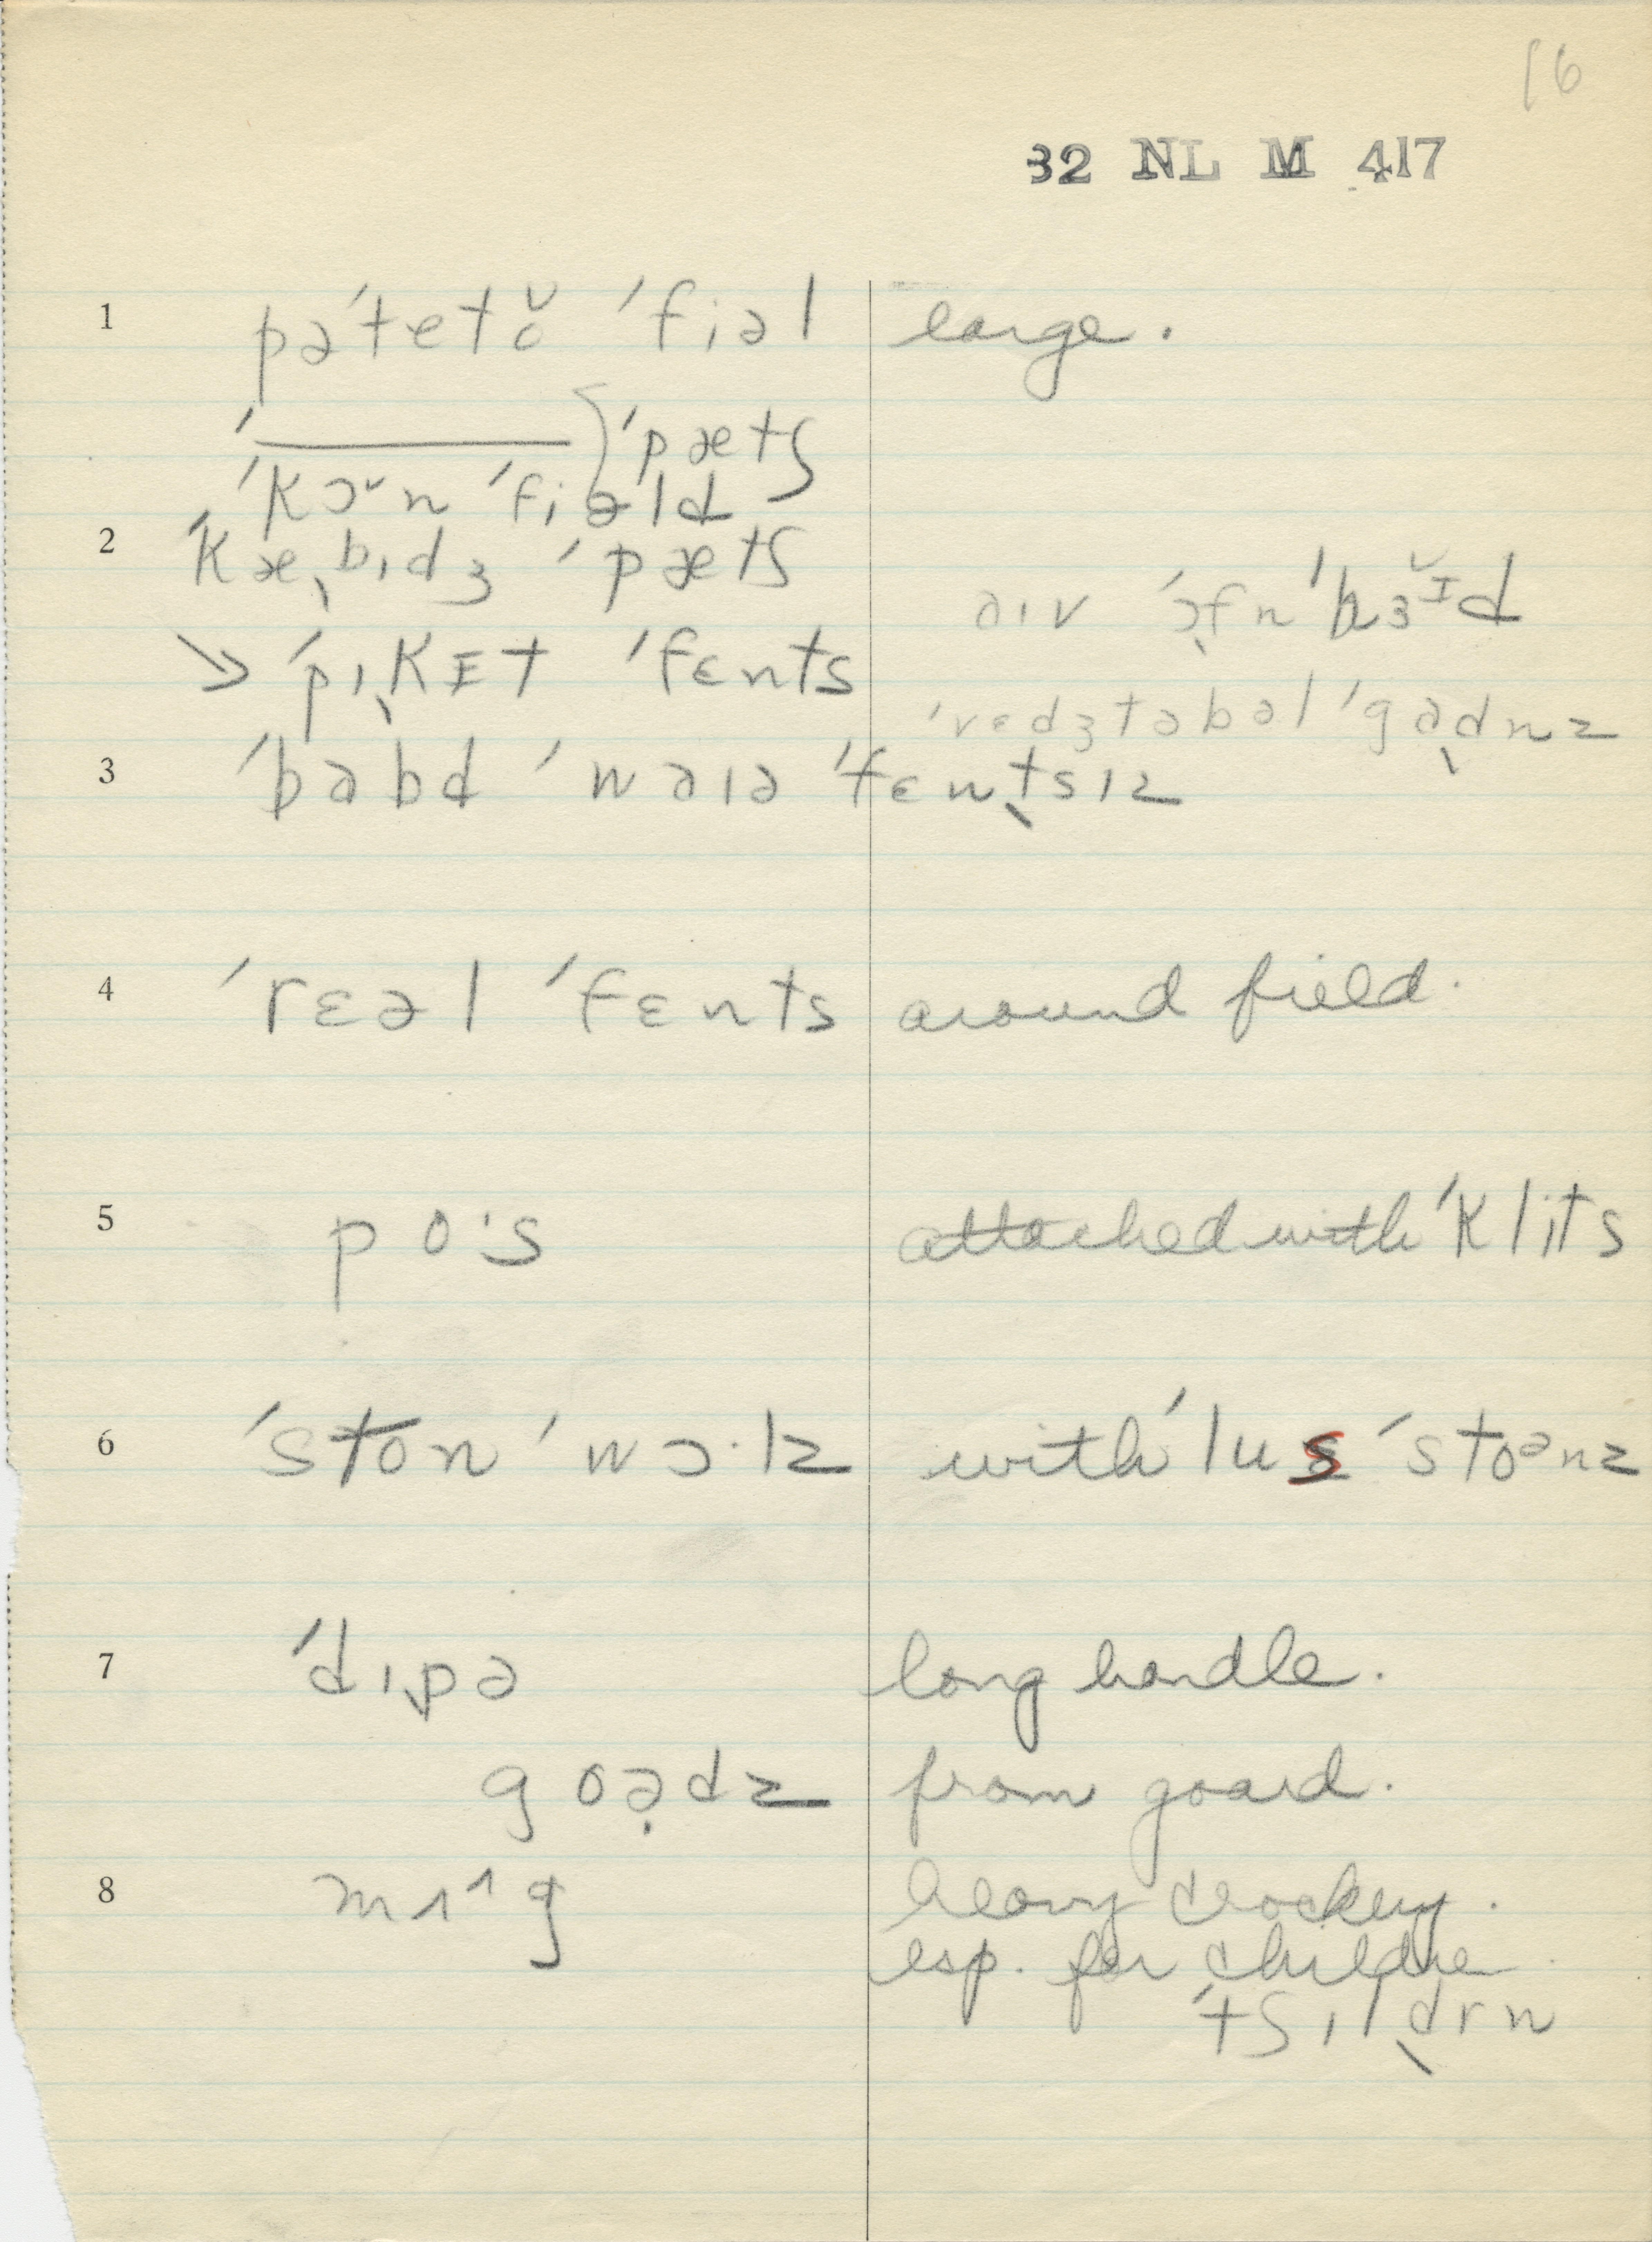 16
32 NL M 417
1 pəˈtetŏ ˈfiəl large.
ˈ——— } ˈpætʃ
ˈkɔˇn ˈfiəld
2 ˈkæˎbɪdʒ ˈpætʃ
aɪv ˈɔfn ˈhɜˇɪd
→ ˈpɪˎkɪt ˈfɛnts
ˈvɛdʒtəbəl ˈgaˎdnz
3 ˈbabd ˈwaɪə ˈfɛnˎtsɪz
4 ˈrɛəl ˈfɛnts around field.
5 po·s attached with ˈklits
6 ˈston ˈwɔ·lz with ˈlus ˈstoᵊnz
7 ˈdɪˎpə long handle.
goə̣dz from goard.
8 mʌ^g heavy crockery.
esp. for childre
ˈtʃɪlˎdrn